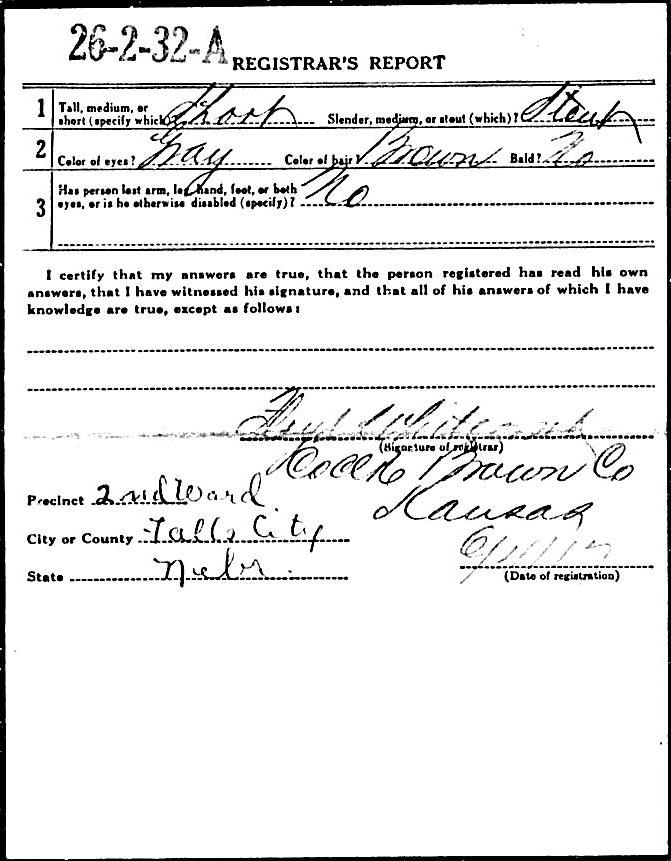 26-2-32-A REGISTRAR'S REPORT
1 Tall, medium, or short (specify which) Short Slender, medium, or stout (which)? Stout
2 Color of eyes? Gray Color of hair Brown Bald? No
3 Has person lost arm, leg, hand, foot, or both
eyes, or is he otherwise disabled (specify)? No
I certify that my answers are true, that the person registered has read his own
answers, that I have witnessed his signature, and that all of his answers of which I have
knowledge are true, except as follows:
Whitcomb
(Signature of registrar)
Brown Co
Precinct 2nd Ward
Kansas
City or County Falls City
State Nebr.
(Date of registration)